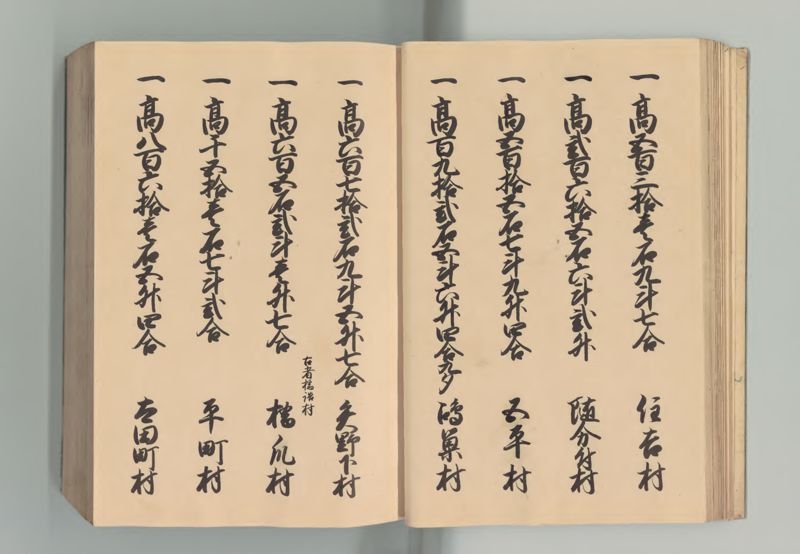 一 高五百三拾壱石九斗七合 住吉村
一 高弐百六拾五石六斗弐升 随分附村
一 高五百拾五石七斗九升四合 五平村
一 高百九拾弐石五斗六升四合九夕 鴻巣村
一 高六百七拾弐石九斗五升七合 矢野下村
古者橋詰村
一 高六百五石弐斗壱升七合 橋爪村
一 高十五拾壱石七斗弐合 平町村
一 高八百六拾壱石五升四合 太田町村